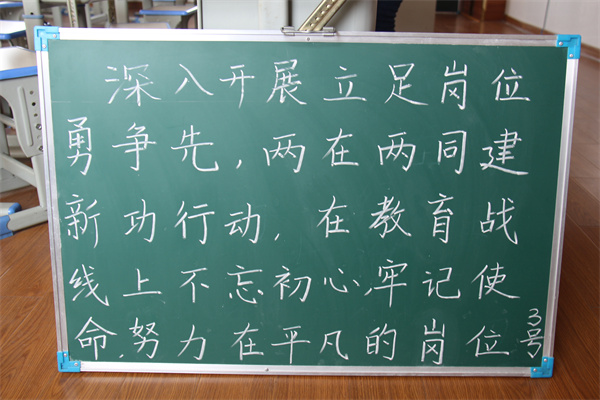 深入开展立足岗位
勇争先，两在两同建
新功行动，在教育战
线上不忘初心，牢记使
命，努力在平凡的岗位
3号